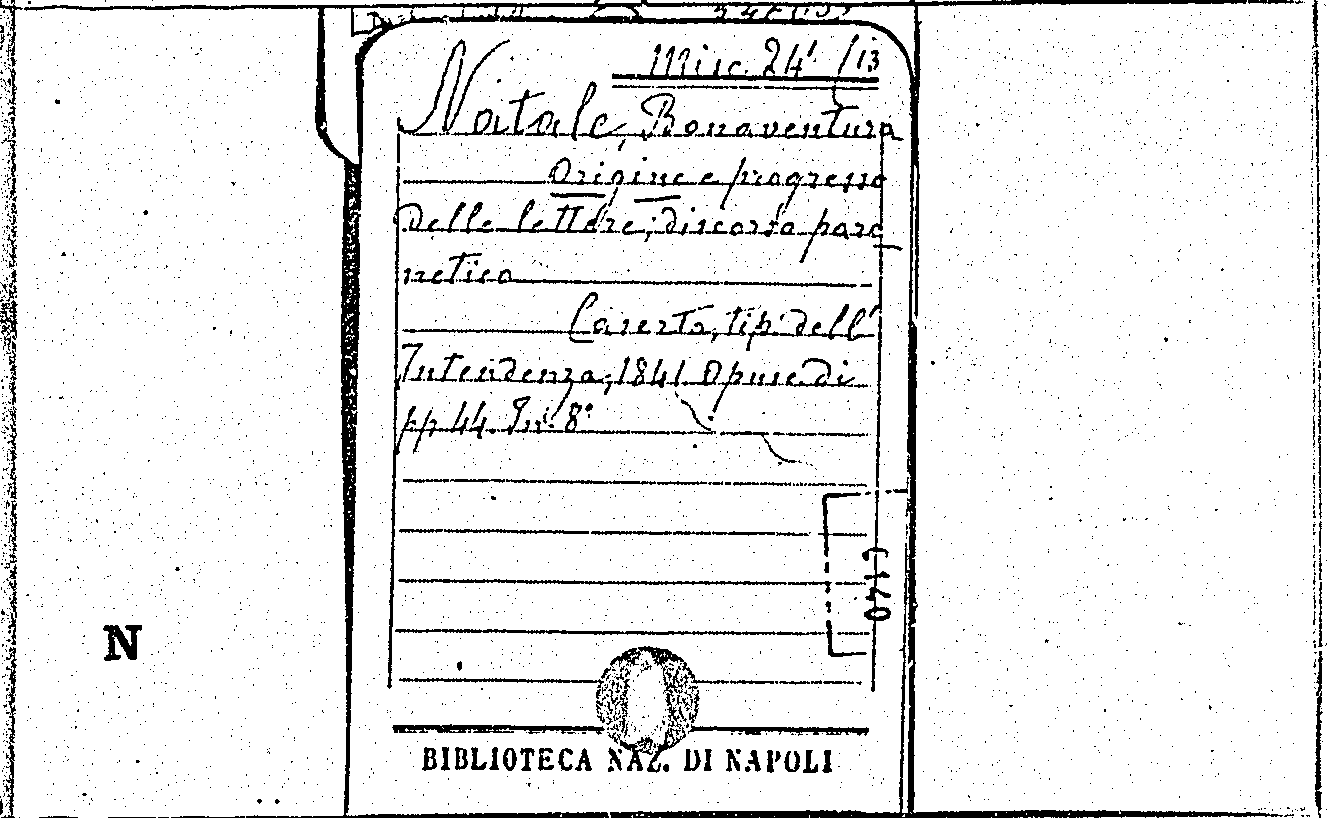 Misc. 24' /13
Natale, Bonaventura
Origine e progresso
delle lettere; discorso pare
netico
Caserta, tip. dell'
Intendenza, 1841. Opusc. di
pp. 44. In 8°
N
BIBLIOTECA NAZ. DI NAPOLI